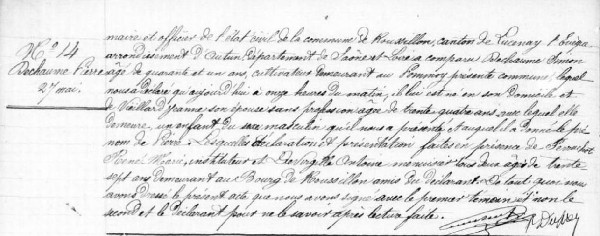 maire et officier de l'état civil de la commune de Roussillon, canton de Lucenay l'Evêque
Nº 14
arrondissement d'Autun Département de Saône et Loire a comparu Dechaume Simon
Dechaume Pierre
âgé de quarante et un ans, cultivateur demeurant au Pommoy présente commune, lequel
27 mai.
nous a déclaré qu'aujourd'hui à onze heures du matin, il lui est né en son domicile et
de Vaillard Jeanne son épouse sans profession agée de trente quatre ans avec laquelle elle
demeure, un enfant du sexe masculin qu'il nous a présenté et auquel il a donné le pré
nom de Pierre. Lesquelles déclaration et présentation faites en présence de
instituteur et Antoine menuisier tous deux âgés de trente
sept ans demeurant au Bourg de Roussillon amis du déclarant. De tout quoi nous
avons dressé le présent acte que nous avons signé avec le premier témoin et non le
second et le déclarant pour ne le savoir après lecture faite.